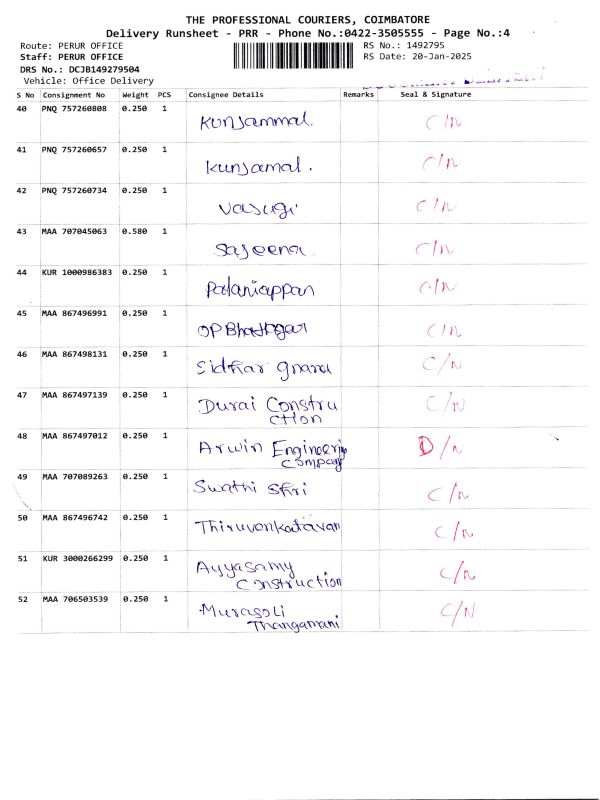 THE PROFESSIONAL COURIERS, COIMBATORE
Delivery Runsheet - PRR - Phone No.:0422-3505555 - Page No.:4
Route: PERUR OFFICE RS No.: 1492795
Staff: PERUR OFFICE RS Date: 20-Jan-2025
DRS No.: DCJB149279504
Vehicle: Office Delivery
S No Consignment No Weight PCS Consignee Details Remarks Seal & Signature
40 PNQ 757260808 0.250 1 Kunjammal C/N
41 PNQ 757260657 0.250 1 Kunjamal. C/N
42 PNQ 757260734 0.250 1 Vasugi C/N
43 MAA 707045063 0.580 1 Sajeena C/N
44 KUR 1000986383 0.250 1 Palaniappan C/N
45 MAA 867496991 0.250 1 OP C/N
46 MAA 867498131 0.250 1 Sidhar Gnana C/N
47 MAA 867497139 0.250 1 Durai Constru C/N
ction
48 MAA 867497012 0.250 1 Arwin Engineering D/N
company
49 MAA 707089263 0.250 1 Swathi Shri C/N
50 MAA 867496742 0.250 1 Thiruvenkatavan C/N
51 KUR 3000266299 0.250 1 Ayyasamy C/N
Construction
52 MAA 706503539 0.250 1 Murasoli C/N
Thangamani